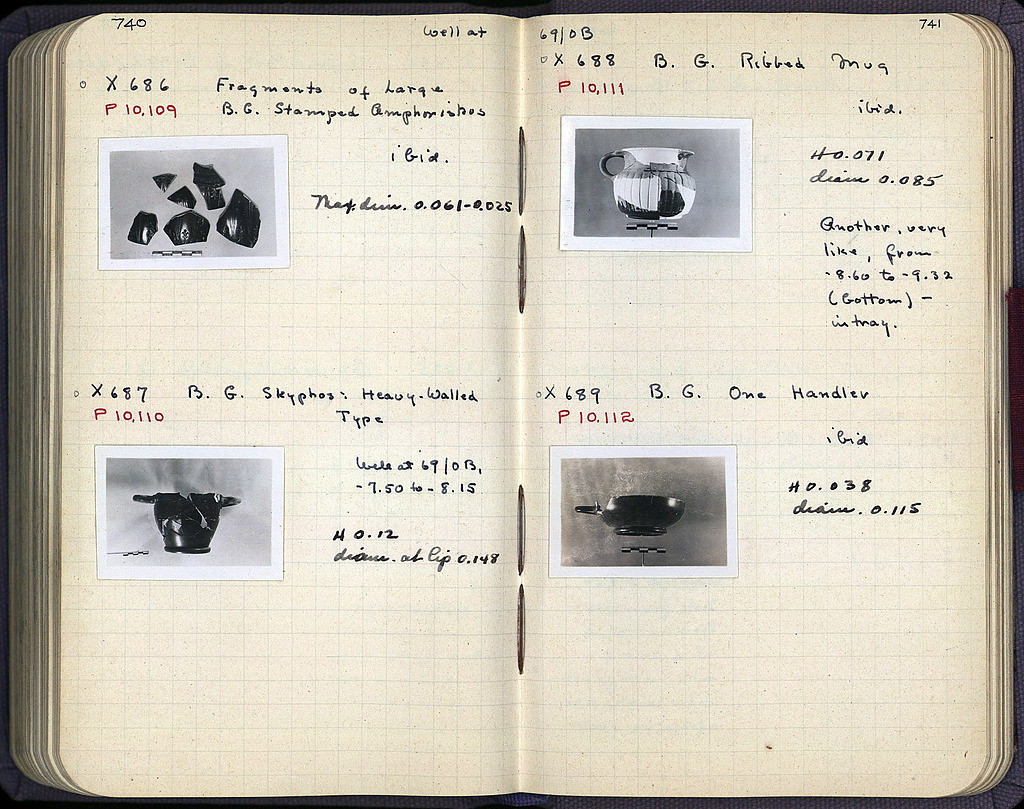 740
Well at
X 686 Fragments of Large
P 10,109 B.G. Stamped Amphoriskos
ibid.
Max. dim. 0.061-0.025
X 687 B. G. Skyphos: Heavy-Walled
P 10,110 Type
Well at 69/OB,
-7.50 to -8.15
H 0.12
diam. at lip 0.148
741
69/OB
X 688 B. G. Ribbed Mug
P 10,111
ibid.
H 0.071
diam 0.085
Another, very
like, from
-8.60 to -9.32
(bottom) -
in tray.
X 689 B. G. One Handler
P 10,112
ibid
H 0.038
diam. 0.115